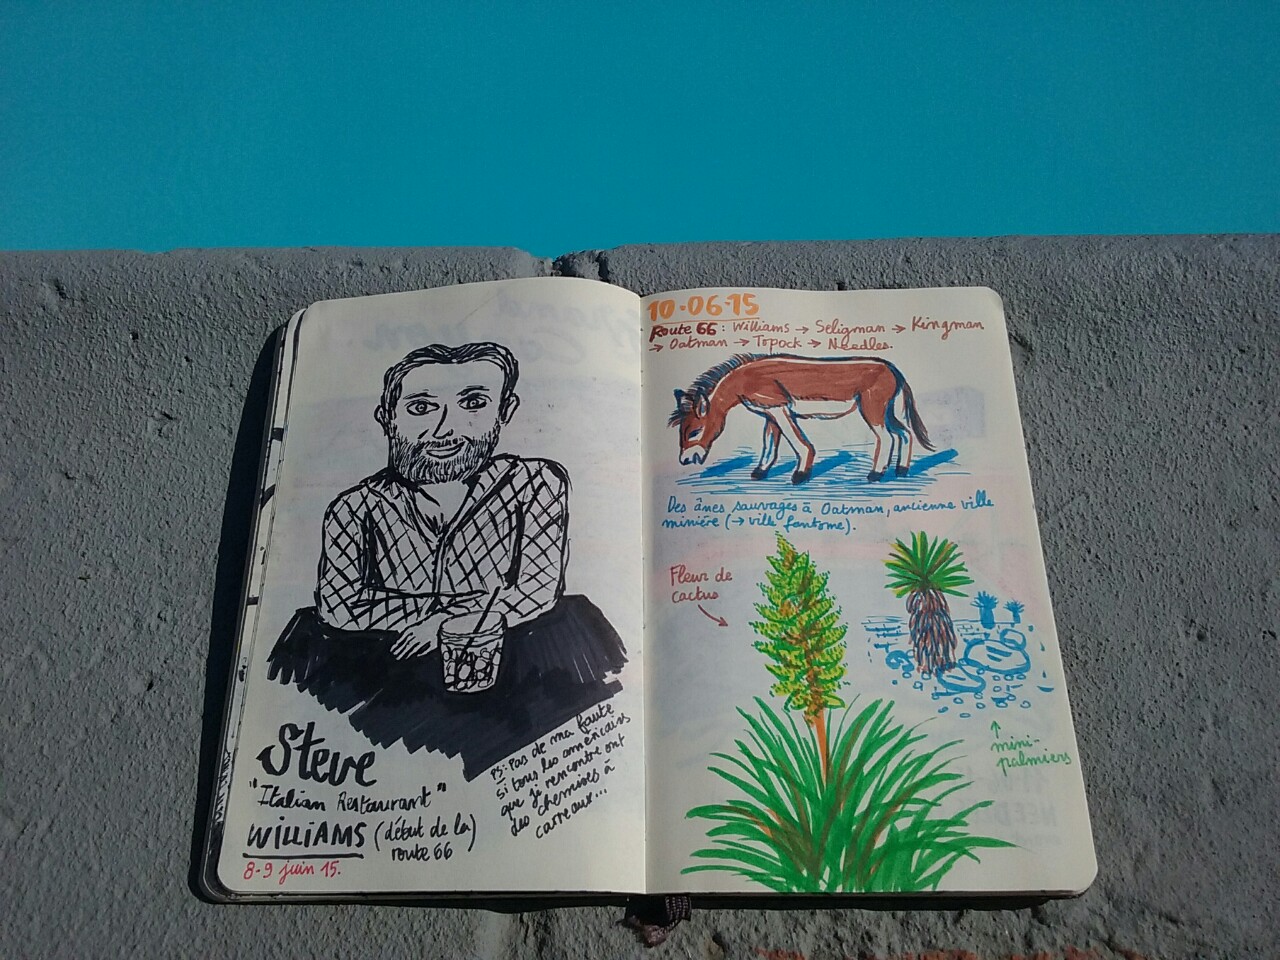 Steve
"Italian Restaurant"
WILLIAMS (début de la
route 66)
8-9 juin 15.
PS: Pas de ma faute
si tous les américains
que je rencontre ont
des chemises à
carreaux...
10-06-15
Route 66: Williams → Seligman → Kingman
→ Oatman → Topock → Needles.
Des ânes sauvages à Oatman, ancienne ville
minière (→ ville fantôme).
Fleur de
cactus
↑
mini-
palmiers